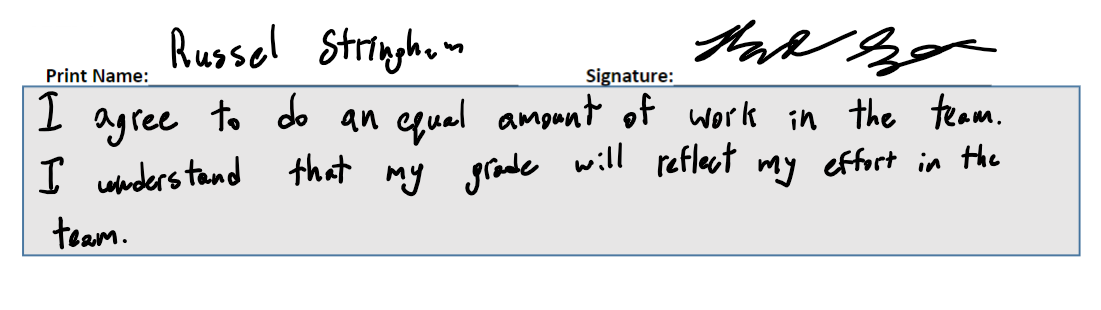 Russel Stringham
Print Name: Signature:
I agree to do an equal amount of work in the team.
I understand that my grade will reflect my effort in the
team.